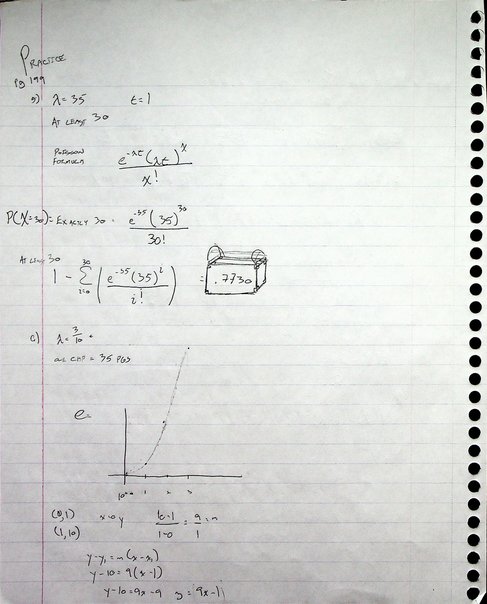 PRACTICE
Pg 199
λ = 35 t = 1
AT LEAST 30
POISSON
FORMULA e^-λt (λt)^x / x!
P(X=30) = EXACTLY 30 = e^-35 (35)^30 / 30!
AT LEAST 30
1 - Σ i=0 30 ( e^-35 (35)^i / i! ) = .7730
c) λ = 3/10
= 35 PGS
e=
1 2 3
(0,1) y 10-1 / 1-0 = 9/1 = m
(1,10)
y-y₁ = m(x-x₁)
y-10 = 9(x-1)
y-10 = 9x-9